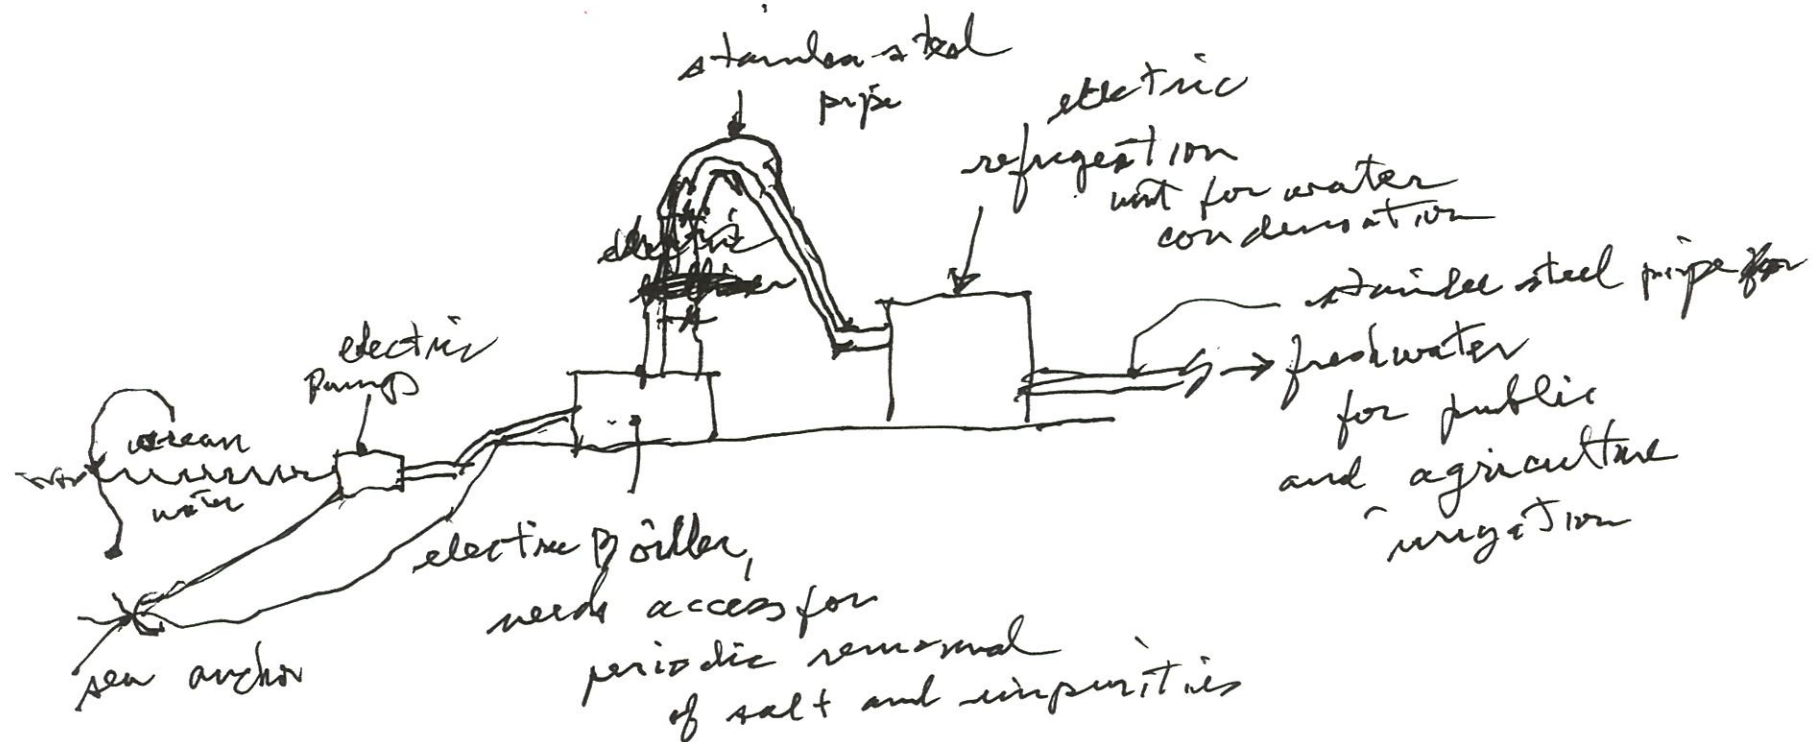 stainless steel
pipe
electric
refrigeration
unit for water
condensation
electric
stainless steel pipe for
freshwater
for public
and agriculture
irrigation
electric
pumps
ocean
water
electric Boiler,
needs access for
periodic removal
of salt and impurities
sea anchor